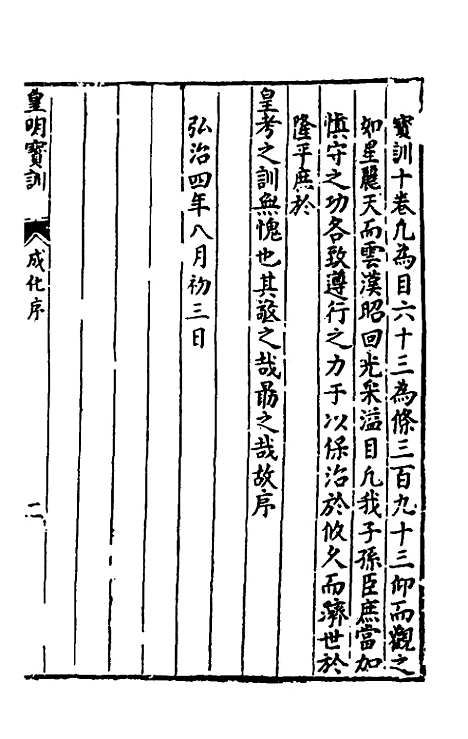 寳訓十卷凢為目六十三為條三百九十三仰而觀之
如星麗天而雲漢昭回光采溢目凢我子孫臣庶當加
慎守之功各致遵行之力于以保治於攸久而濟世於
隆平庶於
皇考之訓無愧也其敬之哉勗之哉故序
弘治四年八月初三日
皇明寳訓
成化序
二